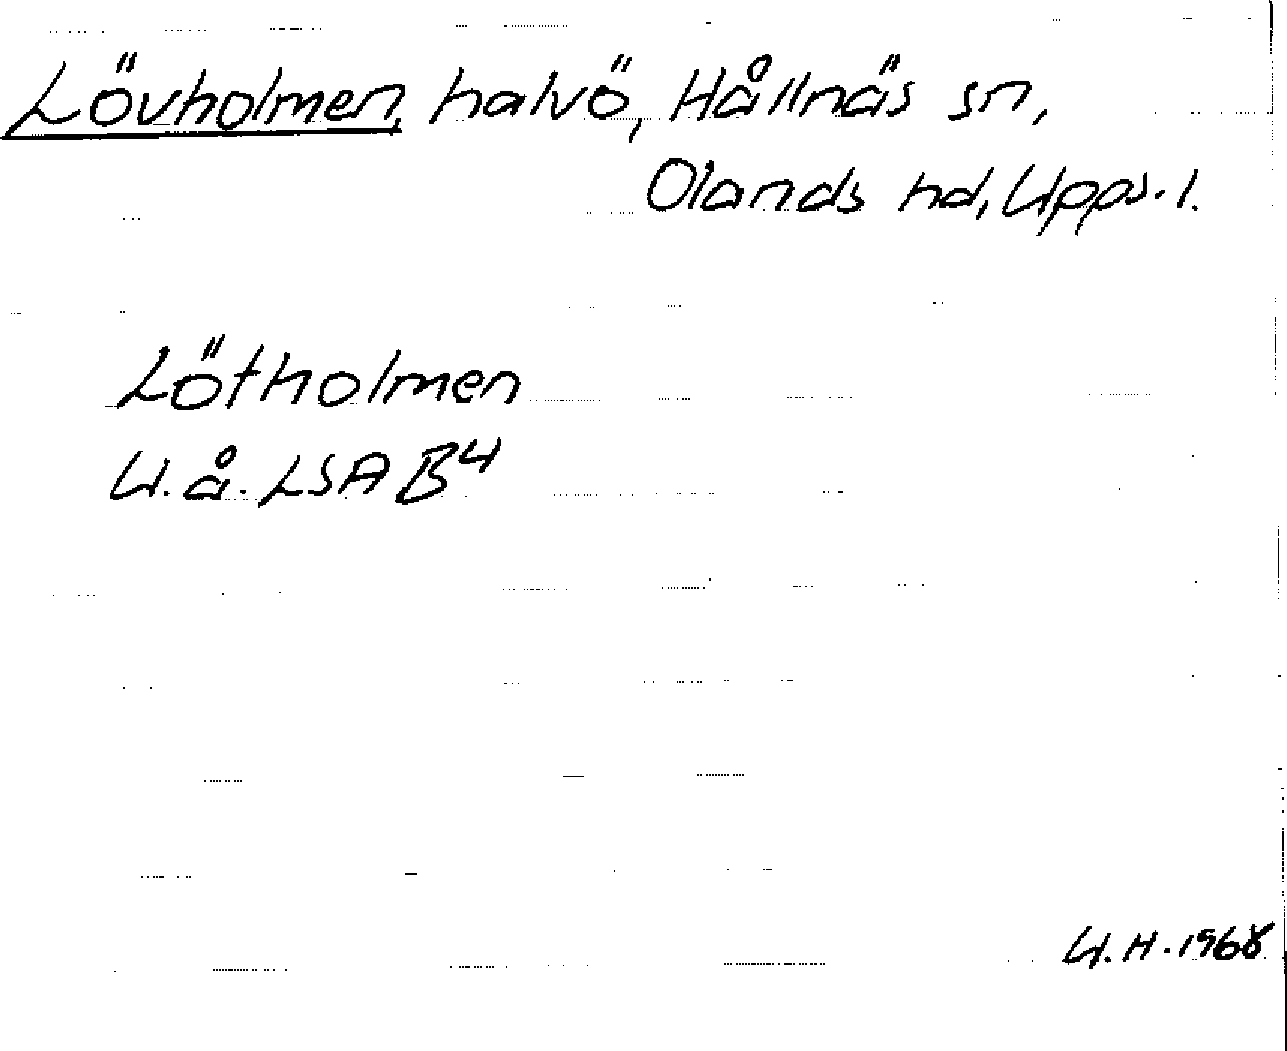 Lövholmen, halvö, Hållnäs sn,
Olands hd, Upps. l.
Lötholmen
U. å. LSA B4
U. H. 1968